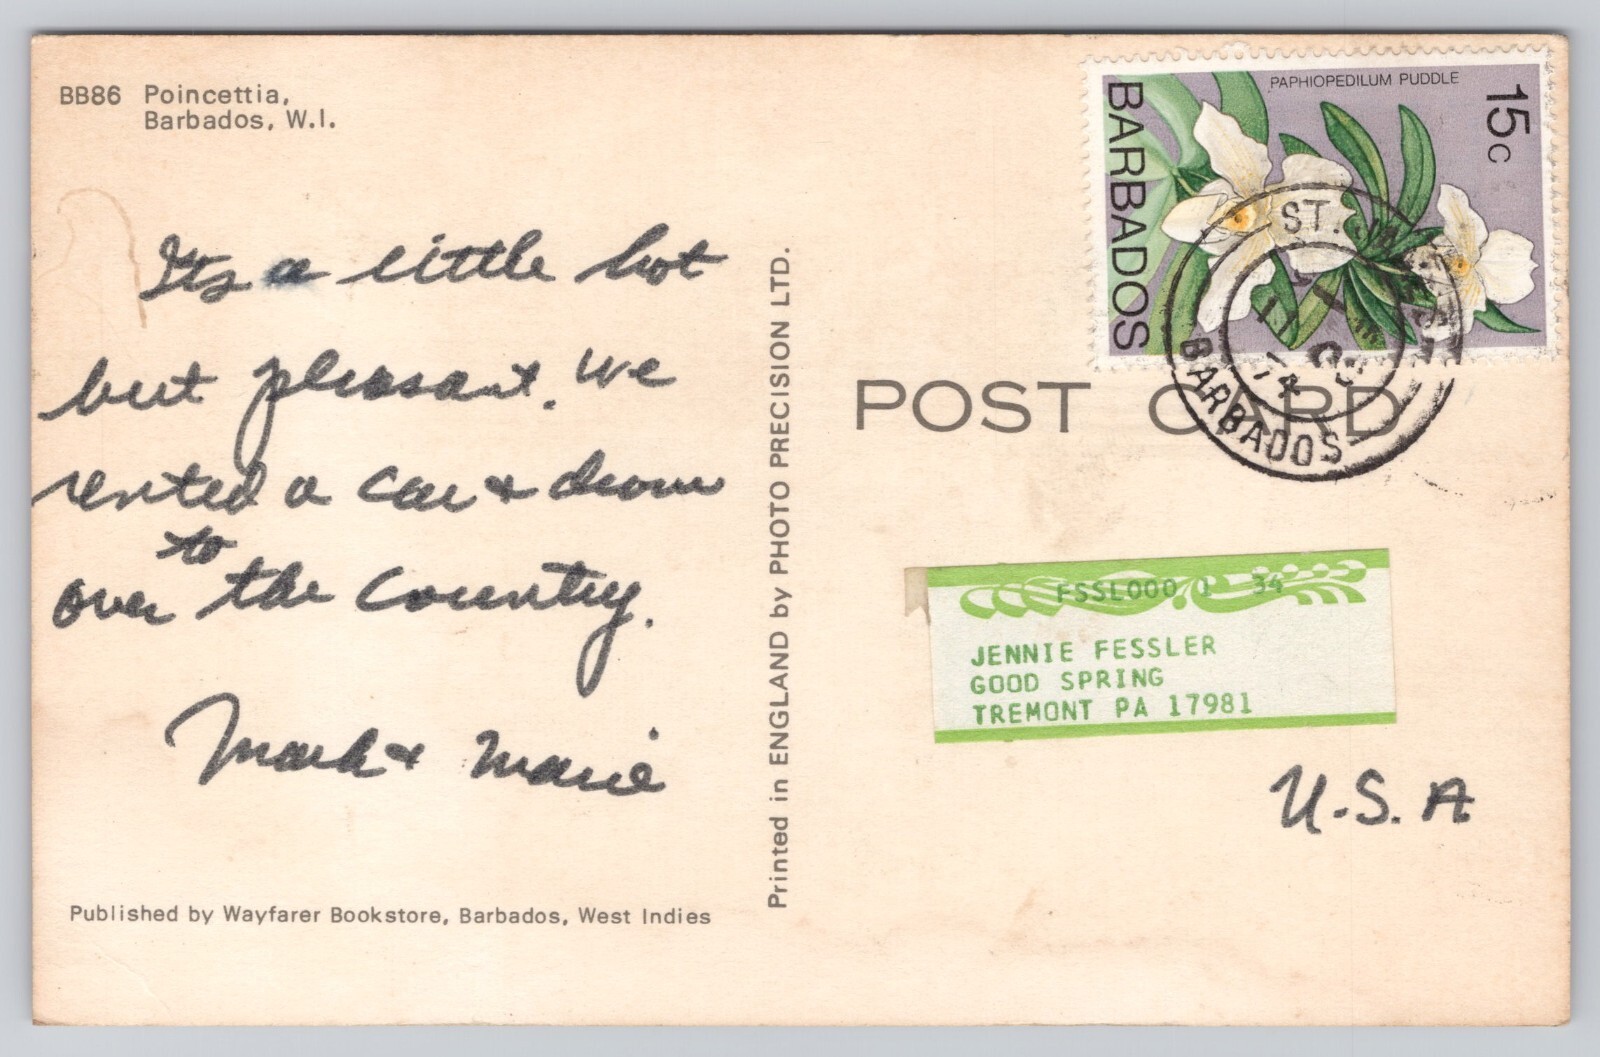 BB86 Poincettia,
Barbados, W.I.
Its a little hot
but pleasant. We
rented a car & drove
to
over the country.
Mark & Marie
Published by Wayfarer Bookstore, Barbados, West Indies
Printed in ENGLAND by PHOTO PRECISION LTD.
PAPHIOPEDILUM PUDDLE
BARBADOS
15c
ST. JAMES
11
74
BARBADOS
POST CARD
FSSL000 1 34
JENNIE FESSLER
GOOD SPRING
TREMONT PA 17981
U.S.A